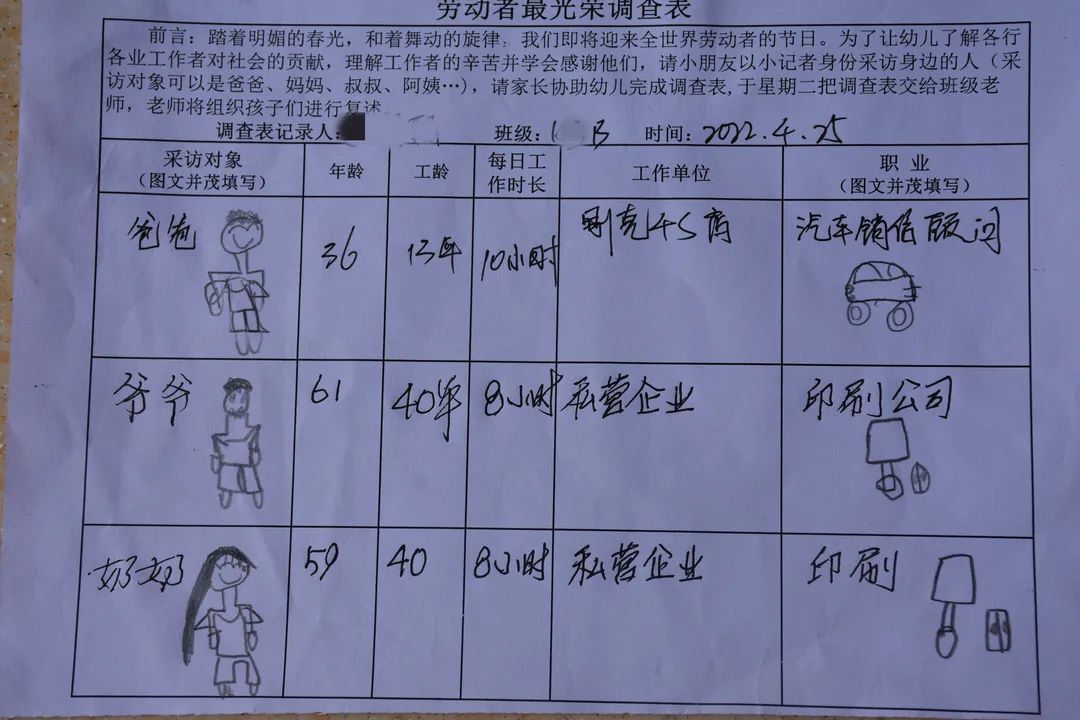 劳动者最光荣调查表
前言：踏着明媚的春光，和着舞动的旋律，我们即将迎来全世界劳动者的节日。为了让幼儿了解各行
各业工作者对社会的贡献，理解工作者的辛苦并学会感谢他们，请小朋友以小记者身份采访身边的人（采
访对象可以是爸爸、妈妈、叔叔、阿姨…），请家长协助幼儿完成调查表,于星期二把调查表交给班级老
师，老师将组织孩子们进行复述。
调查表记录人： 班级： B 时间：2022.4.25
采访对象
（图文并茂填写） 年龄 工龄 每日工
作时长 工作单位 职业
（图文并茂填写）
爸爸 36 13年 10小时 别克4S商 汽车销售顾问
爷爷 61 40年 8小时 私营企业 印刷公司
奶奶 59 40 8小时 私营企业 印刷